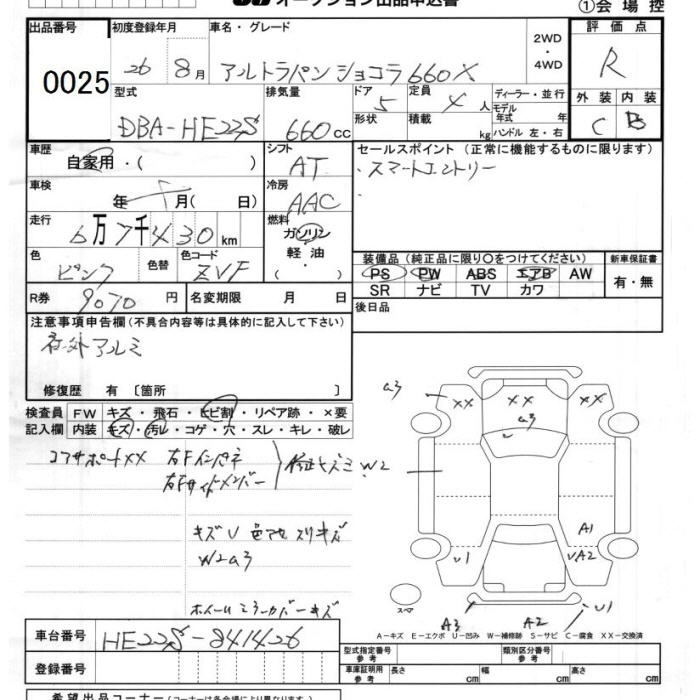 オークション出品申込書
①会 場 控
出品番号 初度登録年月 車名・グレード 2WD ・ 4WD 評 価 点
0025 26 8月 アルトラパンショコラ660X R
型式 排気量 ドア 5 定員 4人 ディーラー・並行 外 装 内 装
DBA-HE22S 660cc 形状 積載 kg モデル年式 年 ハンドル 左・右 C B
車歴 シフト セールスポイント (正常に機能するものに限ります)
自家用・( ) AT ・スマートエントリー
車検 年 月( 日) 冷房 AAC ・
走行 6万7千430km 燃料 ガソリン
色 色替 色コード 軽 油 装備品 (純正品に限り〇をつけてください) 新車保証書
ピンク ZVF ・( ) PS PW ABS エアB AW 有・無
SR ナビ TV カワ
R券 9070 円 名変期限 月 日 後日品
注意事項申告欄 (不具合内容等は具体的に記入して下さい)
社外アルミ
修復歴 有 〔箇所 〕
検査員 FW キズ・飛石・ヒビ割・リペア跡・×要
記入欄 内装 キズ・汚レ・コゲ・穴・スレ・キレ・破レ
コアサポートXX 右Fインパネ 修正キズミ W2
右Fサイドメンバー
キズU 色アセ スリキズ
W2a3
ホイールミラーカバーキズ
a3 XX XX XX
a3
A1
U1 UA2
スペア A3 A2 U1
A－キズ E－エクボ U－凹み W－補修跡 S－サビ C－腐食 XX－交換済
車台番号 HE22S-841426
型式指定番号 参 考 類別区分番号 参 考
登録番号 車庫証明用 参 考 長さ cm 幅 cm 高さ cm
希望出品コーナー (コーナーは各会場により異なります)